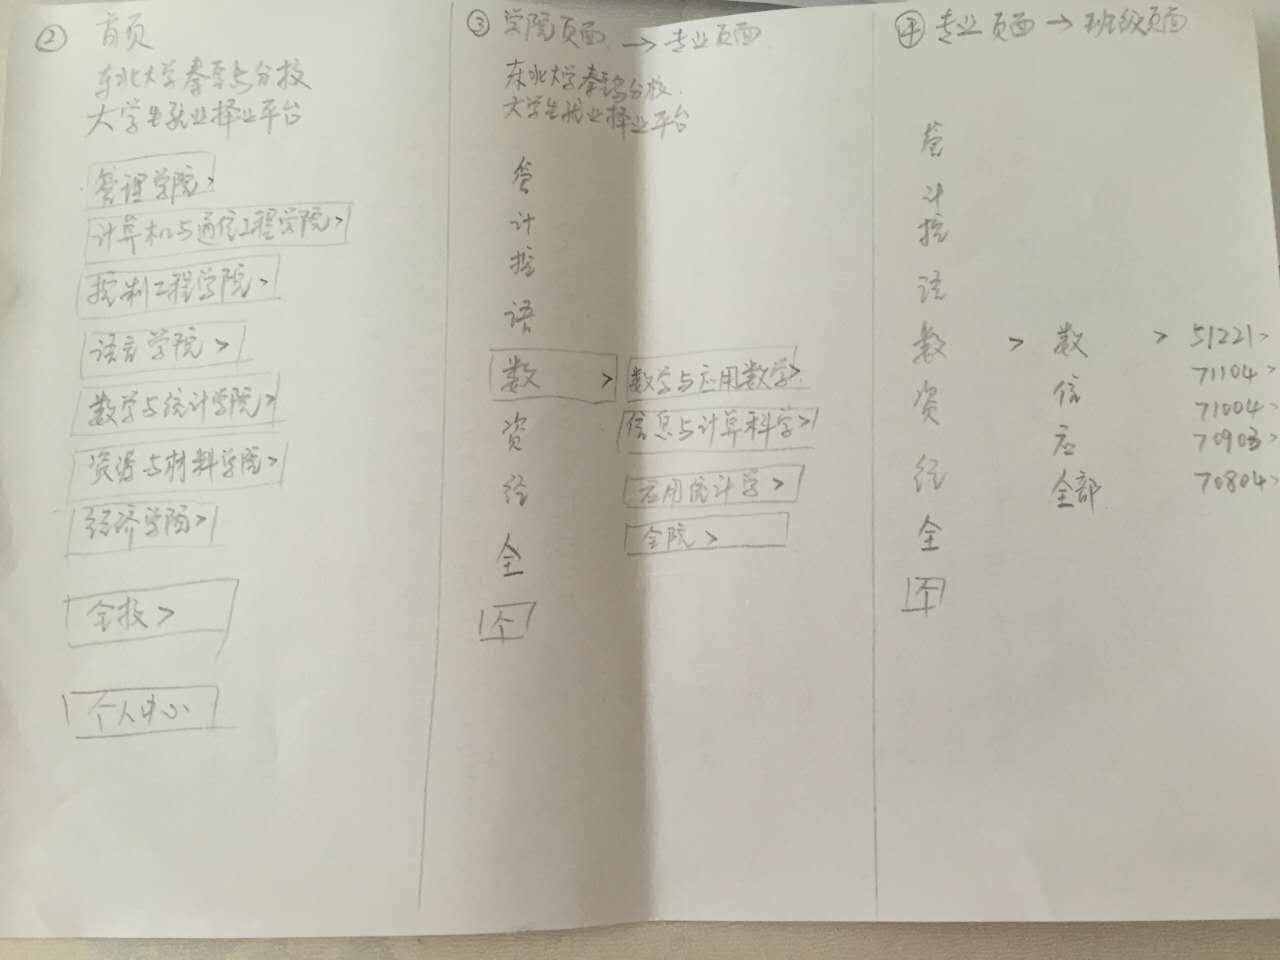 ② 首页
东北大学秦皇岛分校
大学生就业择业平台
管理学院>
计算机与通信工程学院>
控制工程学院>
语言学院>
数学与统计学院>
资源与材料学院>
经济学院>
全校>
个人中心
③ 学院页面 → 专业页面
东北大学秦皇岛分校
大学生就业择业平台
管
计
控
语
数 > 数学与应用数学>
信息与计算科学>
资
应用统计学>
经
全院>
全
个
④ 专业页面 → 班级页面
管
计
控
语
数 > 数 > 51221>
71104>
资 信 71004>
应 70903>
经 全部 70804>
全
个